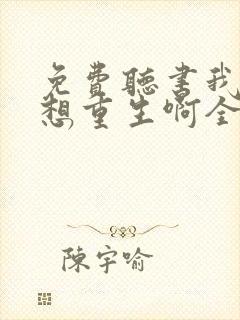 免費聽書我
想重生啊全
陳宇喻